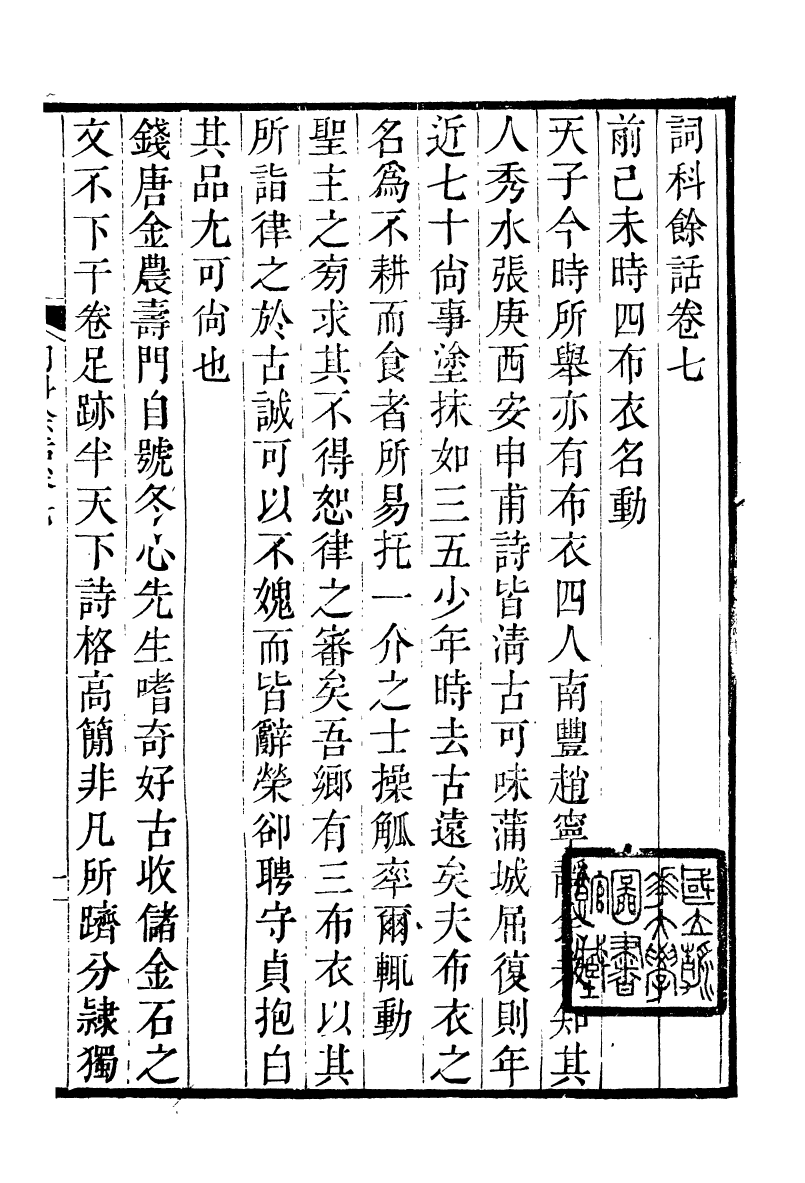 詞科餘話卷七
前己未時四布衣名動
天子今時所舉亦有布衣四人南豐趙寧靜余未知其
人秀水張庚西安申甫詩皆清古可味蒲城屈復則年
近七十尙事塗抹如三五少年時去古遠矣夫布衣之
名爲不耕而食者所易托一介之士操觚率爾輒動
聖主之旁求其不得恕律之審矣吾鄉有三布衣以其
所詣律之於古誠可以不媿而皆辭榮卻聘守貞抱白
其品尤可尙也
錢唐金農壽門自號冬心先生嗜奇好古收儲金石之
文不下千卷足跡半天下詩格高簡非凡所躋分隸獨
國立
華大學
圖書
館藏